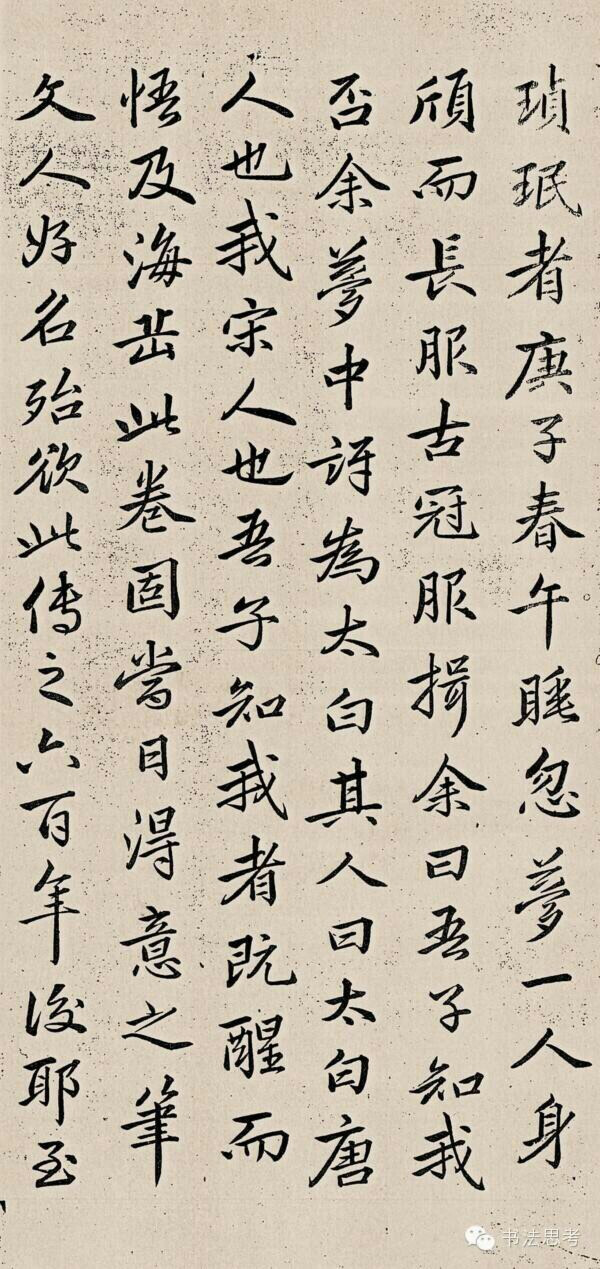 瑱珉者庚子春午睡忽夢一人身
頎而長服古冠服揖余曰吾子知我
否余夢中訝為太白其人曰太白唐
人也我宋人也吾子知我者既醒而
悟及海岳此卷固當日得意之筆
文人好名殆欲此傳之六百年後耶至
书法思考